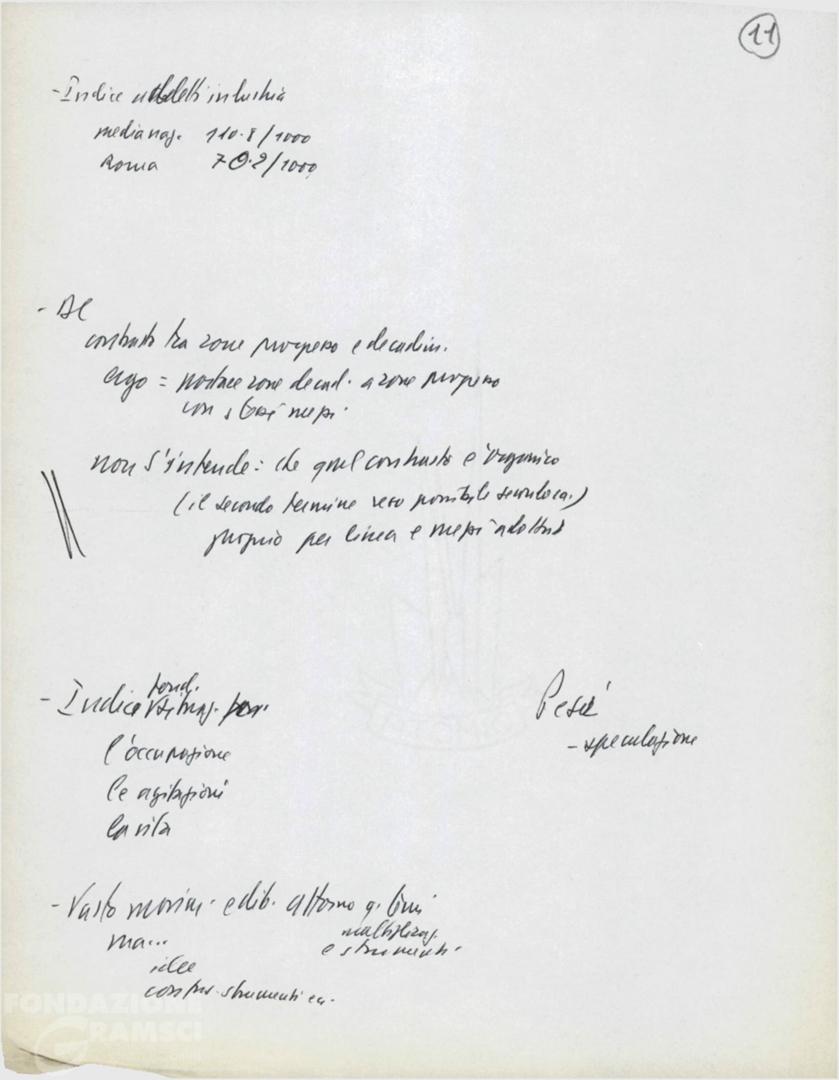 11
- Indice addetti industria
media naz. 110.8/1000
Roma 70.2/1000
- DC
contrasto tra zone prospere e decadin.
ergo = portare zone decad. a zone prospere
con stessi mezzi.
non s'intende: che quel contrasto è organico
(il secondo termine
proprio per linea e mezzi adottati
- Indice fond.
l'occupazione
le agitazioni
la vita
Pesci
- speculazione
- Vasto movim. edil. attorno
ma...
e strumenti.
idee
strumenti ecc.
FONDAZIONE
GRAMSCI